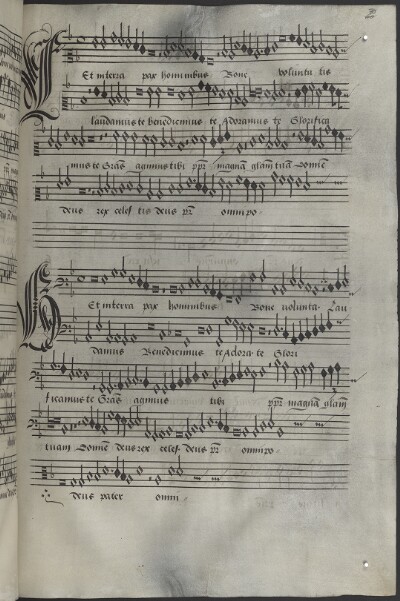 Et in terra pax hominibus Bone volunta tis
laudamus te benedicimus te Adoramus te Glorifica
mus te Gras agimus tibi ppr magna glam tua Domie
deus rex celes tis deus pr omnipo
Et in terra pax hominibus Bone volunta Lau
damus Benedicimus te Adora te Glori
ficamus te Gras agimus tibi ppr magna glam
tuam Domie deus rex celes deus pr omnipo
deus pater omni